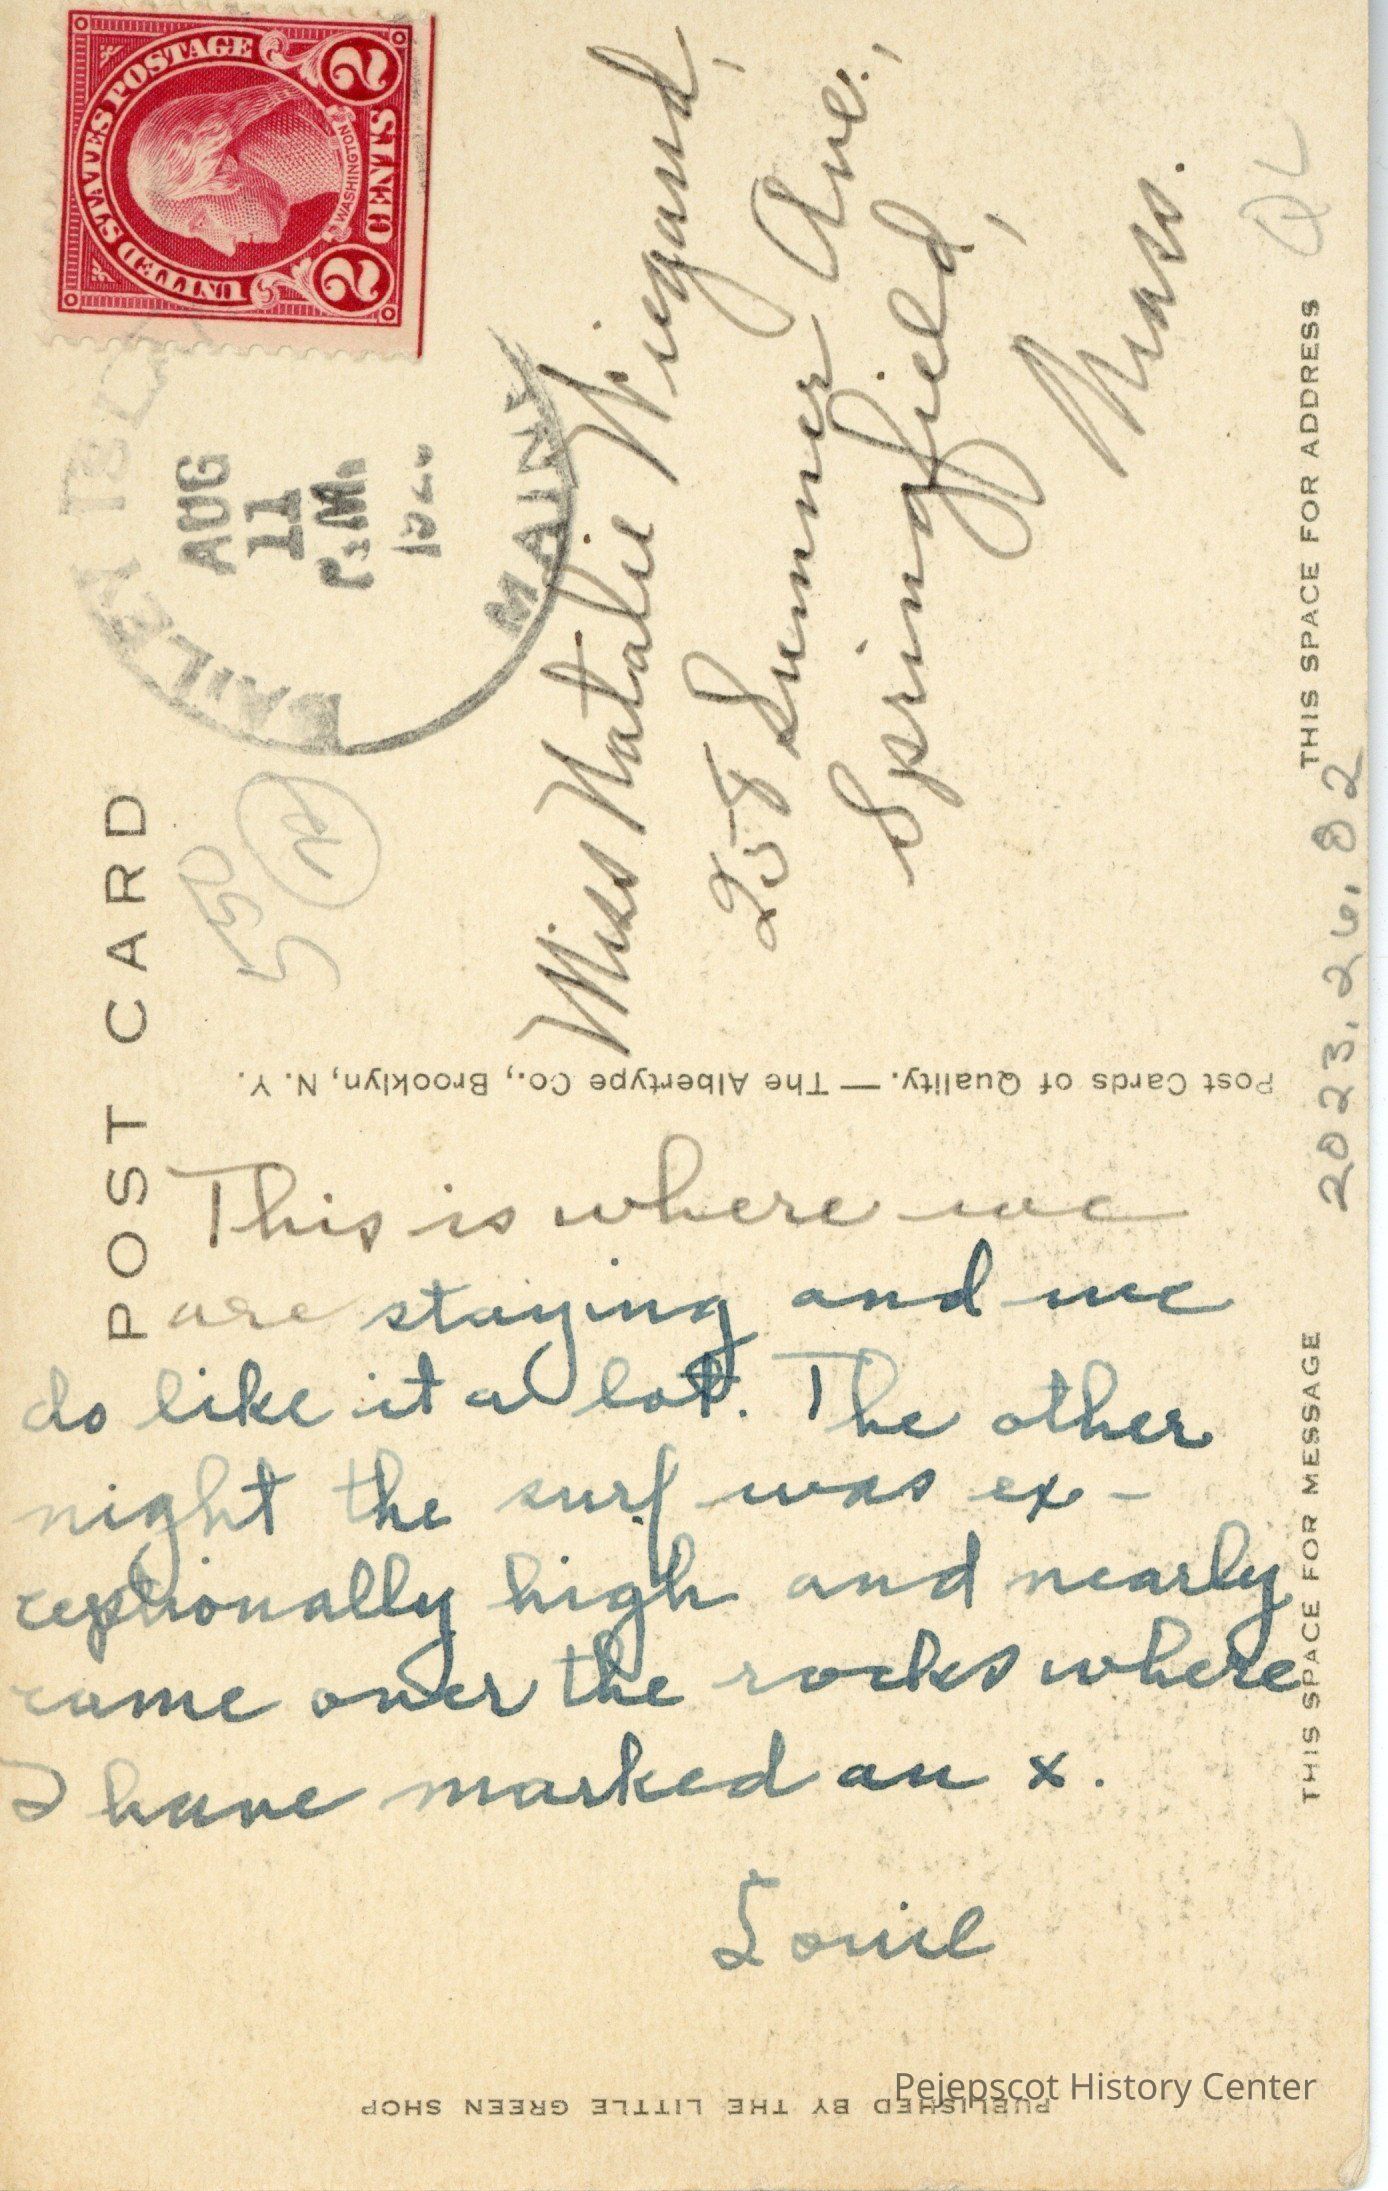 UNITED STATES POSTAGE
WASHINGTON
2 CENTS 2
BAILEY ISL
AUG
11
P.M.
MAINE
POST CARD
550
Miss Natalie Wiegand,
258 Sumner Ave.,
Springfield,
Mass.
THIS SPACE FOR ADDRESS
2023.26.82
Post Cards of Quality. — The Albertype Co., Brooklyn, N. Y.
This is where we
are staying and we
do like it a lot. The other
night the surf was ex-
ceptionally high and nearly
came over the rocks where
I have marked an x.
THIS SPACE FOR MESSAGE
PUBLISHED BY THE LITTLE GREEN SHOP
Pejepscot History Center